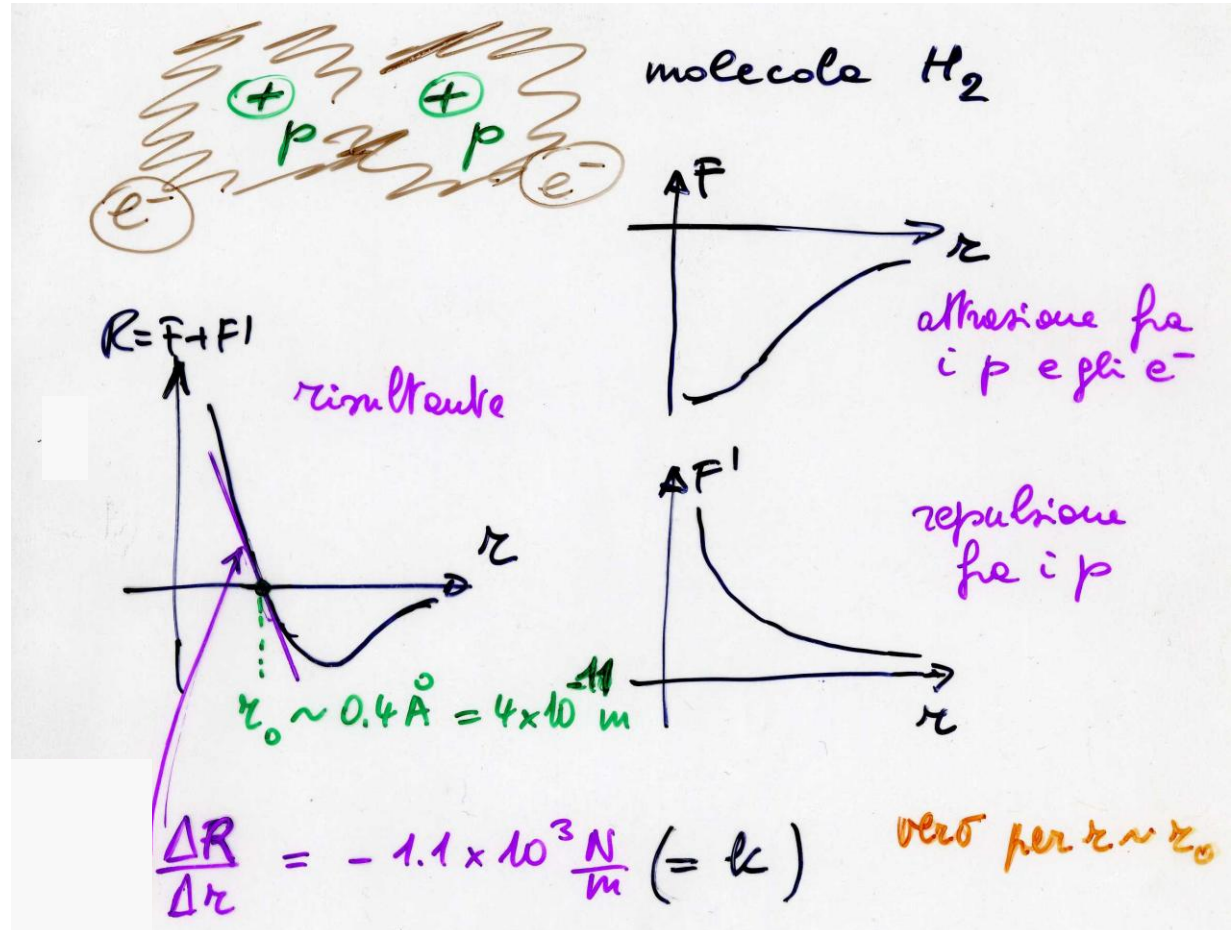 molecola H₂
+ +
p p
e⁻ e⁻
F
r
attrazione fra
i p e gli e⁻
R = F + F'
risultante
r
r₀ ~ 0.4 Å = 4×10⁻¹¹ m
F'
repulsione
fra i p
r
ΔR/Δr = - 1.1 × 10³ N/m (= k)
vero per r ~ r₀